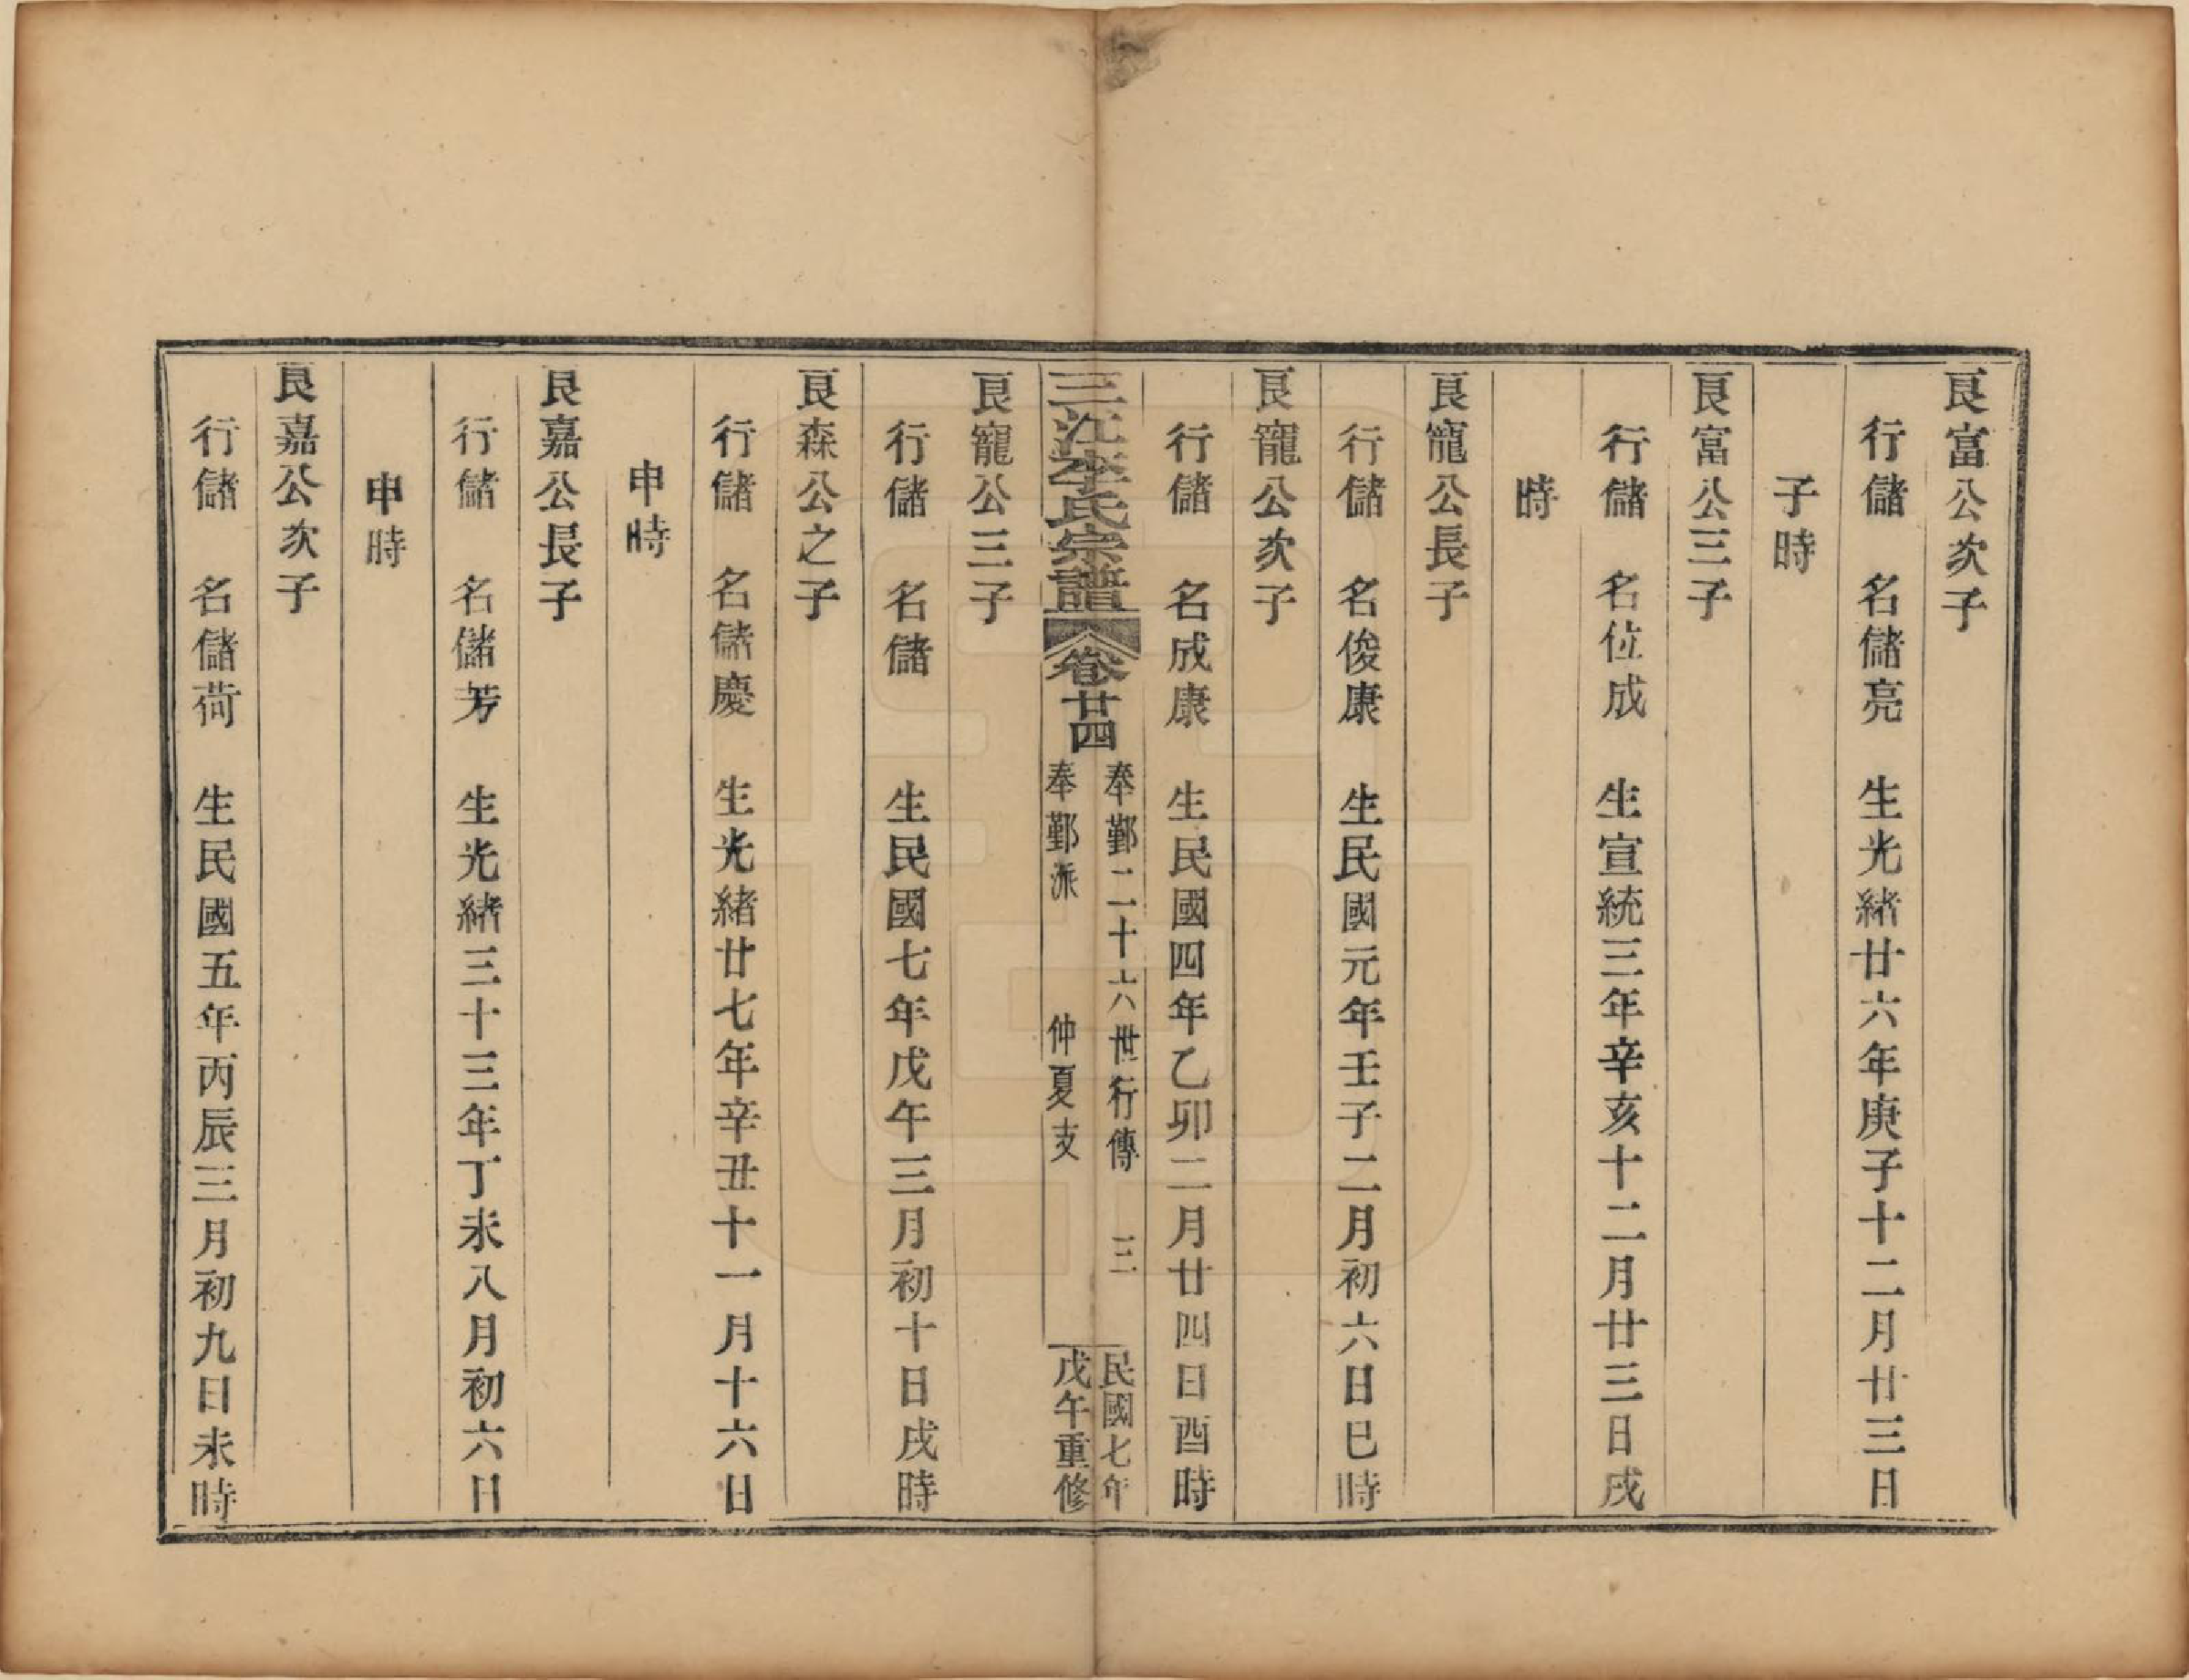 良富公次子
行儲　名儲亮　生光緒廿六年庚子十二月廿三日
子時
良富公三子
行儲　名位成　生宣統三年辛亥十二月廿三日戌
時
良寵公長子
行儲　名俊康　生民國元年壬子二月初六日巳時
良寵公次子
行儲　名成康　生民國四年乙卯二月廿四日酉時
三江李氏宗譜　卷廿四
奉鄞二十六世行傳　三
奉鄞派　仲夏支
民國七年
戊午重修
良寵公三子
行儲　名儲　生民國七年戊午三月初十日戌時
良森公之子
行儲　名儲慶　生光緒廿七年辛丑十一月十六日
申時
良嘉公長子
行儲　名儲芳　生光緒三十三年丁未八月初六日
申時
良嘉公次子
行儲　名儲荷　生民國五年丙辰三月初九日未時